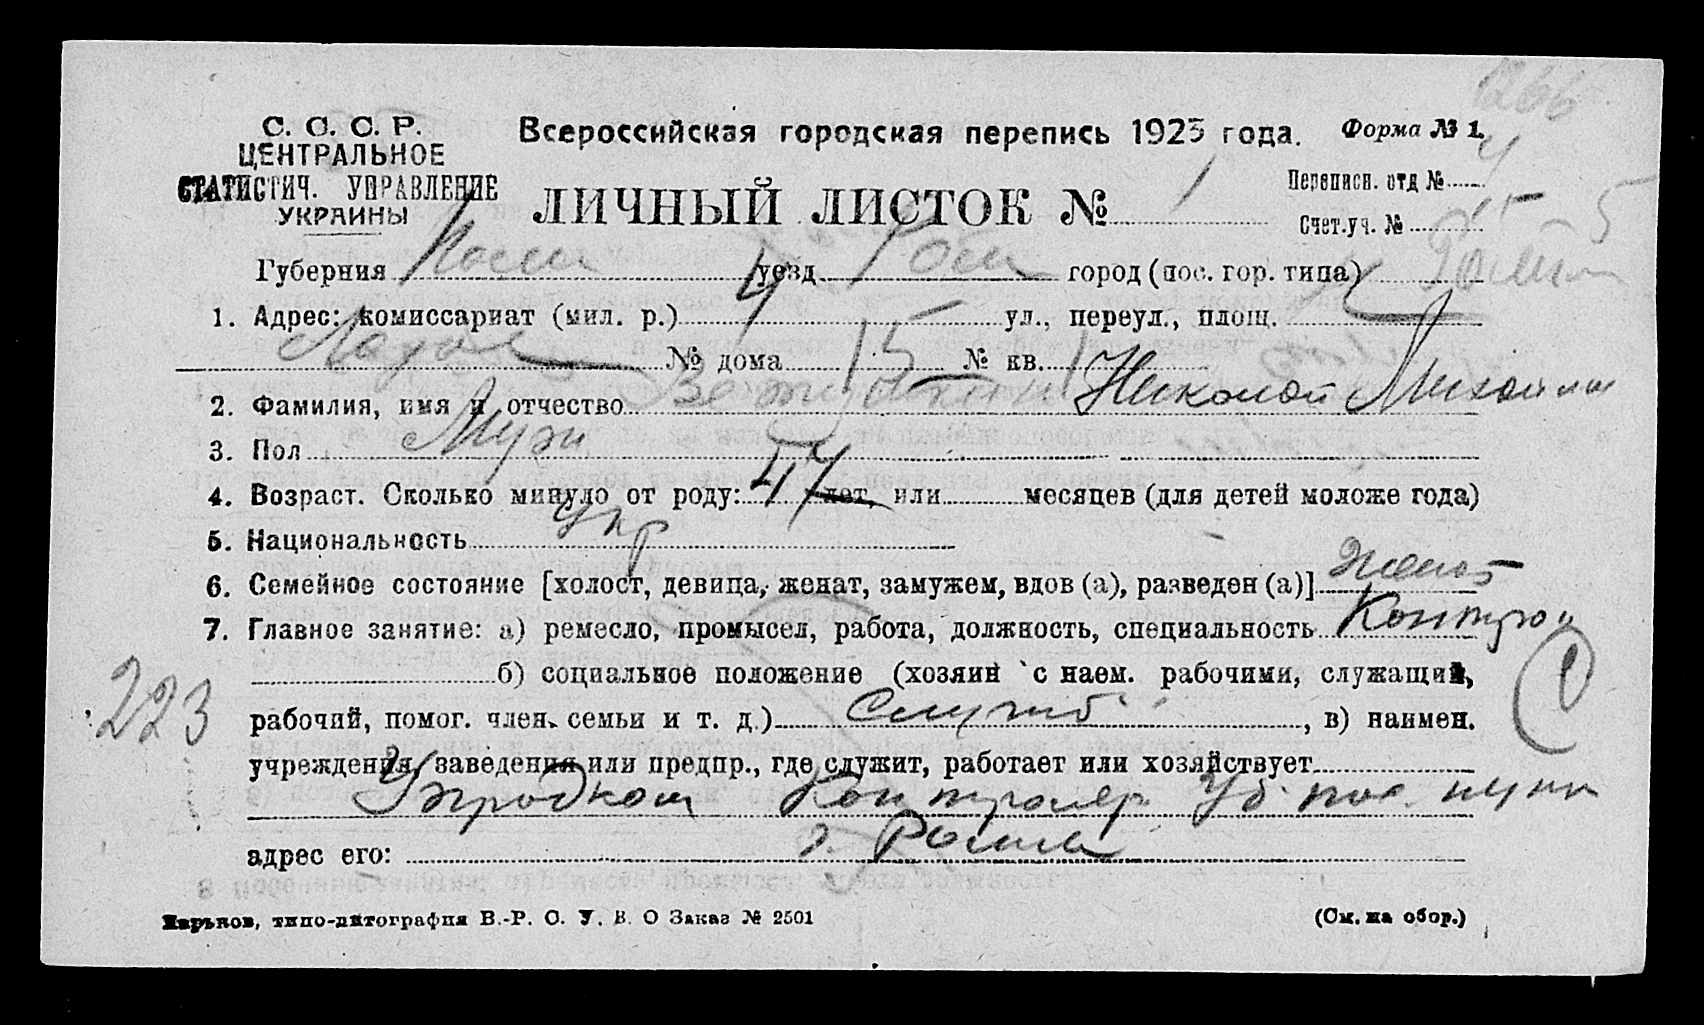 1266
С. С. С. Р.
ЦЕНТРАЛЬНОЕ
СТАТИСТИЧ. УПРАВЛЕНИЕ
УКРАИНЫ
Всероссийская городская перепись 1923 года.
Форма № 1.
ЛИЧНЫЙ ЛИСТОК № 1
Переписн. отд № 4
Счет.уч. № 15 5
Губерния Полт уезд Ром город (пос. гор. типа) Ромны
1. Адрес: комиссариат (мил. р.) 4 ул., переул., площ.
№ дома 15 № кв. 1
2. Фамилия, имя и отчество Николай Михайлов
3. Пол Муж
4. Возраст. Сколько минуло от роду: 47 лет, или месяцев (для детей моложе года)
5. Национальность Укр
6. Семейное состояние [холост, девица, женат, замужем, вдов (а), разведен (а)] Женат
7. Главное занятие: а) ремесло, промысел, работа, должность, специальность Контрол
б) социальное положение (хозяин с наем. рабочими, служащий,
223
рабочий, помог. член. семьи и т. д.) Служ , в) наимен.
учреждения, заведения или предпр., где служит, работает или хозяйствует
Упродком Контролер Уб. пос. пунк
адрес его: г. Ромны
Харьков, типо-литография В.-Р. С. У. В. О Заказ № 2501
(См. на обор.)